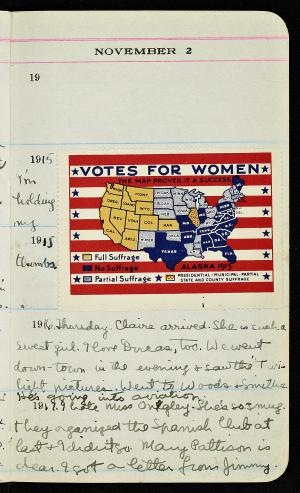 NOVEMBER 2
19
1915
I'm
holding
my
1915
thumbs
VOTES FOR WOMEN
THE MAP PROVES IT A SUCCESS
WASH.
MONT.
ORE.
IDAHO
WYO.
NEV.
UTAH
COL.
CAL.
ARIZ.
KAN.
TEXAS
Full Suffrage
No Suffrage
Partial Suffrage
ALASKA 1915
PRESIDENTIAL-MUNICIPAL-PARTIAL
STATE AND COUNTY SUFFRAGE
1916. Thursday. Claire arrived. She is such a
sweet girl. I love Dorcas, too. We went
down-town in the evening & saw the Twi-
light pictures. Went to Woods & Smiths
He's going into aviation.
19 I hate Miss She's so smug.
They organized the Spanish Club at
last & I didn't go. Mary Pattison is
dear. I got a letter from Jimmy